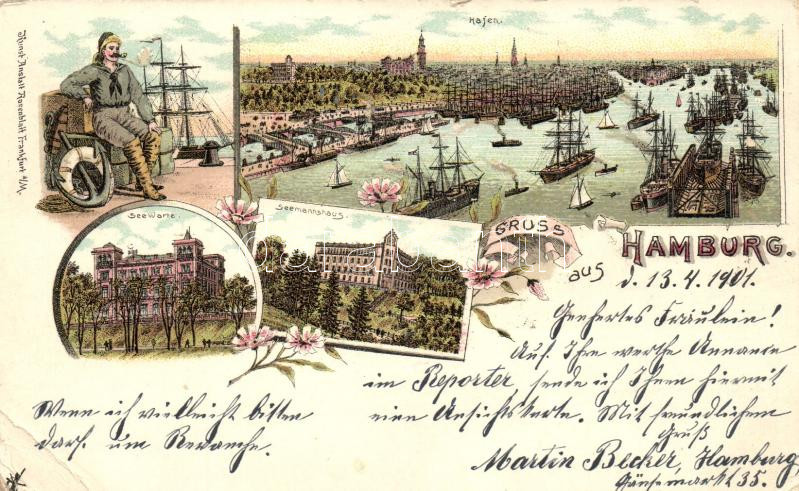 Kunst Anstalt Rosenblatt Frankfurt a/M.
Hafen.
Seewarte.
Seemannshaus.
GRUSS
aus
HAMBURG.
d. 13.4.1901.
Geehrtes Fräulein!
Auf Ihre werthe Annance
im Reporter sende ich Ihnen hiermit
eine Ansichtskarte. Mit freundlichem
Gruß
Martin Becker, Hamburg,
Gänsemarkt 35.
Wenn ich vielleicht bitten
darf. um Revanche.